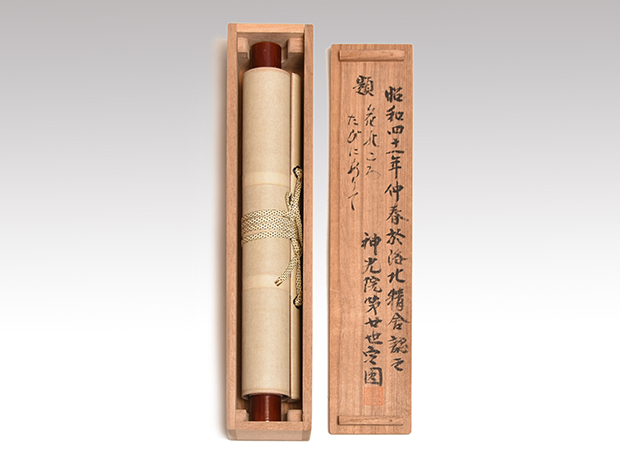 昭和四十一年仲春於洛北精舎認之
神光院第廿世光圓
題
花のころ
たびにありて